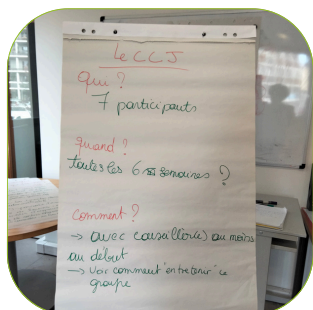 Le CCJ
qui ?
7 participants
quand ?
toutes les 6 semaines ?
comment ?
→ avec conseiller(e) au moins
au début
→ Voir comment "entretenir" le
groupe